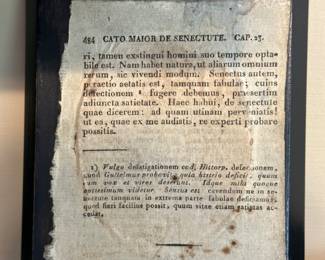 484 CATO MAIOR DE SENECTUTE. CAP. 23.
ri, tamen exstingui homini suo tempore opta-
bile est. Nam habet natura, ut aliarum omnium
rerum, sic vivendi modum. Senectus autem,
peractio aetatis est, tamquam fabulae; cuius
defetigationem fugere debemus, praesertim
adiuncta satietate. Haec habui, de senectute
quae dicerem: ad quam utinam perveniatis!
ut ea, quae ex me audistis, re experti probare
possitis.
1) Vulgo defatigationem cod. Hittorp. defectionem,
quod Gulielmus probavit, quia histrio deficit, quum
eum vox et vires deserunt. Idque mihi quoque
verissimum videtur. Sensus est cavendum ne in se-
nectute tanquam in extrema parte fabulae deficiamus;
quod fieri facilius possit, quum vitae etiam satietas ac-
cedat.